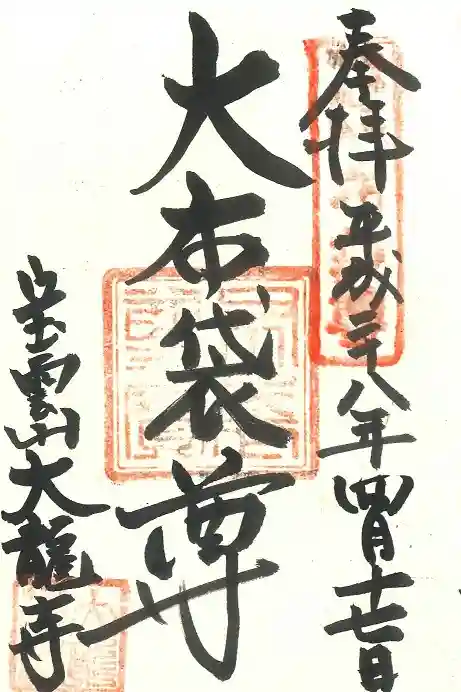 奉拝 平成二十八年四月十七日
大布袋尊
雲山大龍寺